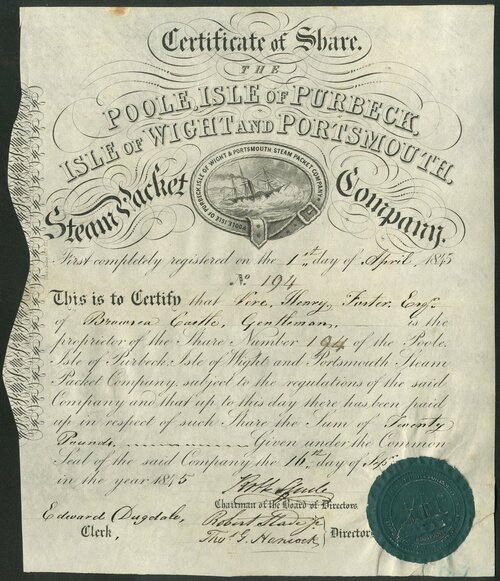 Certificate of Share.
THE
POOLE, ISLE OF PURBECK,
ISLE OF WIGHT AND PORTSMOUTH,
Steam Packet Company.
POOLE ISLE OF PURBECK ISLE OF WIGHT & PORTSMOUTH STEAM PACKET COMPANY
First completely registered on the 1st day of April, 1845
No. 194
This is to Certify that Henry Foster, Esqr.
of Brownsea Castle, Gentleman is the
proprietor of the Share Number 194 of the Poole,
Isle of Purbeck, Isle of Wight and Portsmouth Steam
Packet Company, subject to the regulations of the said
Company and that up to this day there has been paid
up in respect of such Share the Sum of Twenty
Pounds, Given under the Common
Seal of the said Company the 16th day of
in the year 1845
Chairman of the Board of Directors
Edward Dugdale,
Clerk,
Robert Slade Jr.
Thos. G. Hancock
Directors